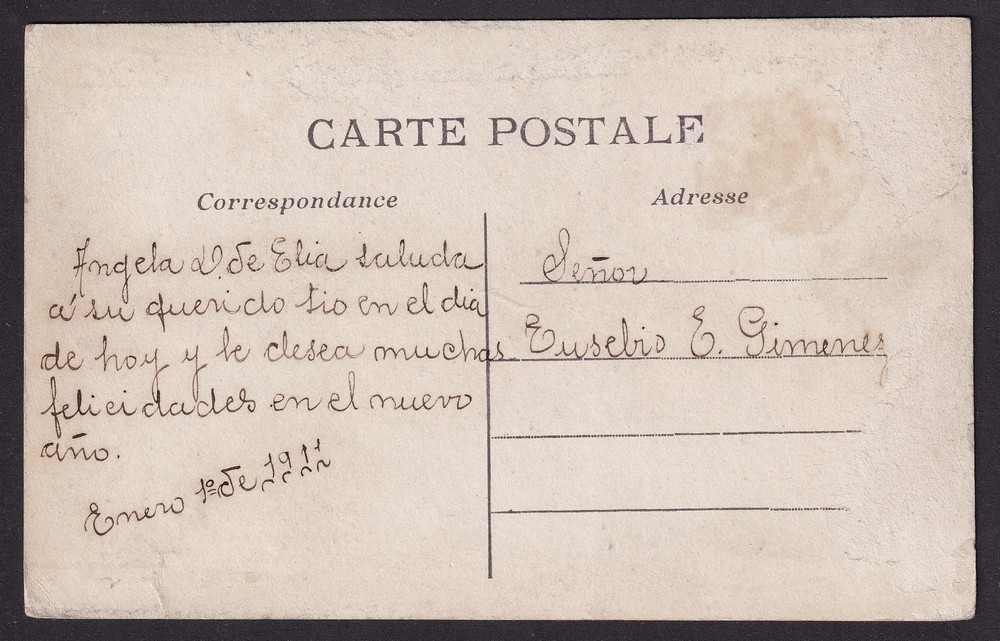 CARTE POSTALE
Correspondance
Angela D. de Elia saluda
á su querido tio en el dia
de hoy y le desea muchas
felicidades en el nuevo
año.
Enero 1º de 1911
Adresse
Señor
Eusebio E. Gimenez